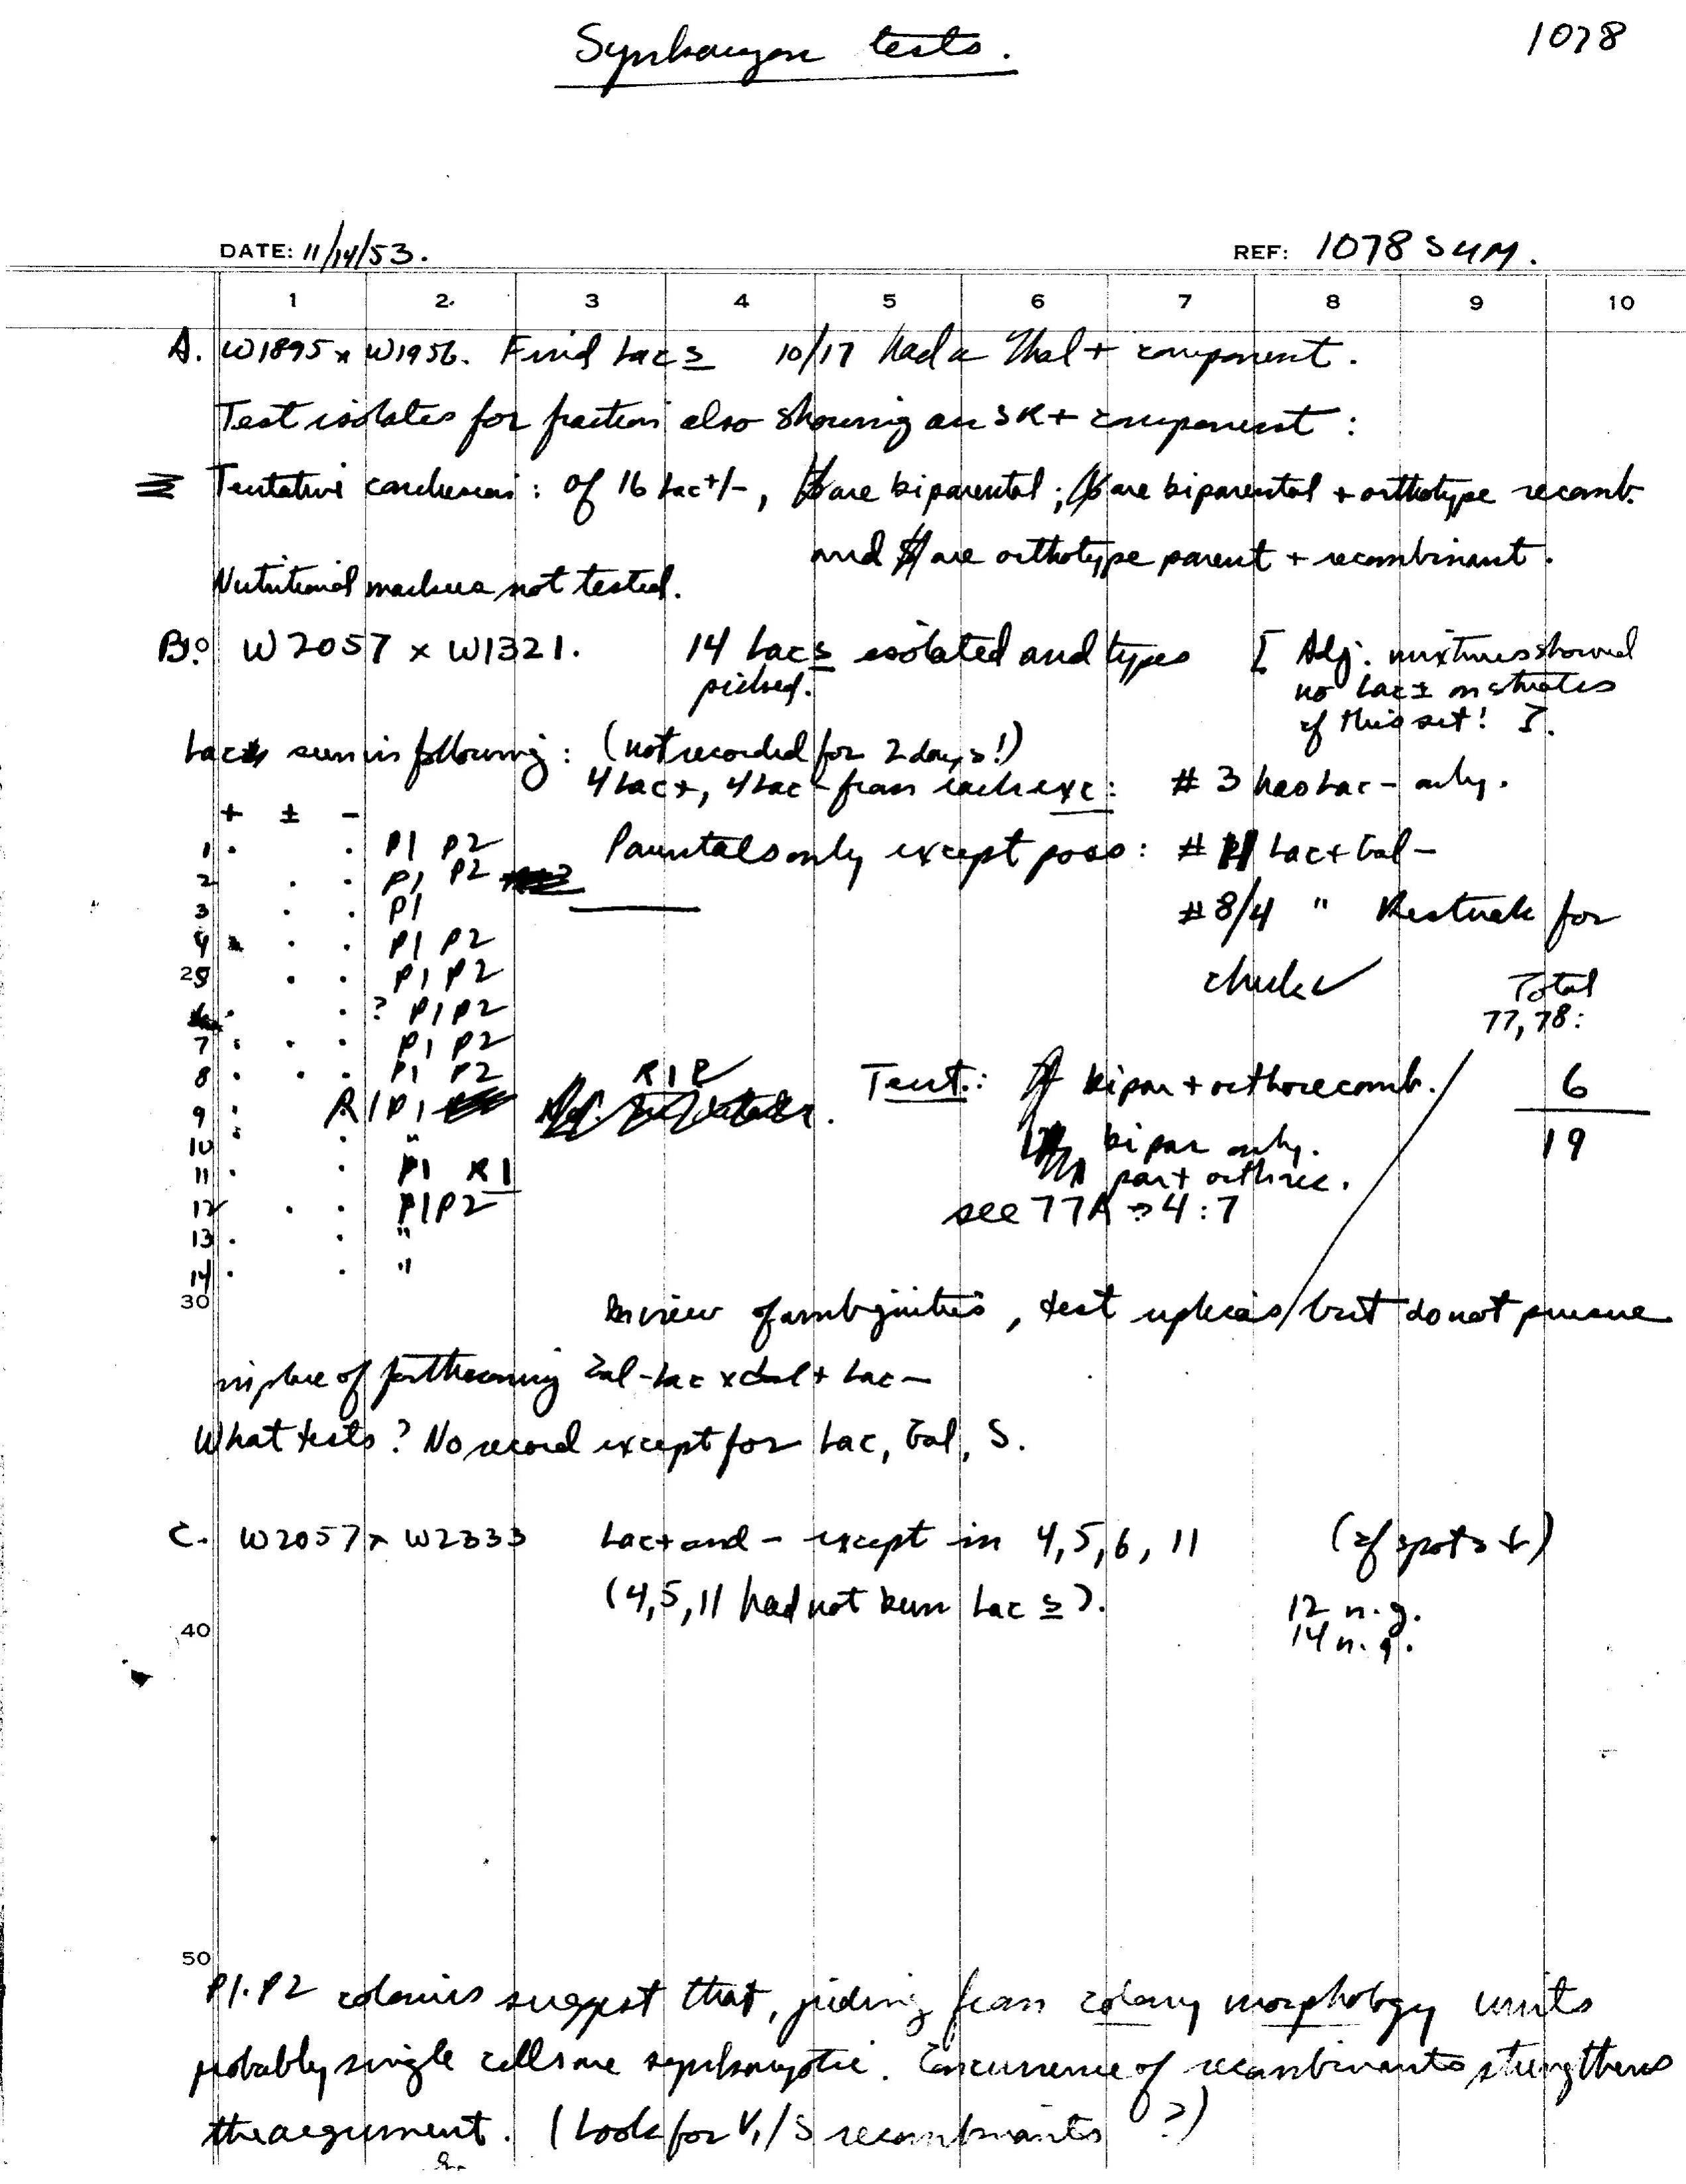 Synkaryon tests. 1078
DATE: 11/14/53. REF: 1078 SUM.
1 2. 3 4 5 6 7 8 9 10
A. W1895 x W1956. Find Lac s 10/17 had a Mal + component.
Test isolates for fraction also showing an SR + component:
Tentative conclusion: Of 16 Lac+/-, are biparental; are biparental + orthotype recomb.
and are orthotype parent + recombinant.
Nutritional markers not tested.
B. W2057 x W1321. 14 Lac s isolated and types [ Adj. mixtures showed
picked. no Lac ± on streaks
of this set! ].
Lac seen in following: (not recorded for 2 days!)
4 Lac+, 4 Lac- from each exc: # 3 has Lac- only.
+ ± -
1 . . P1 P2 Parentals only except poss: # 11 Lac+ Gal-
2 . . P1 P2
3 . . P1 #8/4 " Restreak for
4 . . P1 P2
25 . . P1 P2 check ✓ Total
. . ? P1 P2 77, 78:
7 . . . P1 P2
8 . . . P1 P2 R1P Tent.: bipar + orthorecomb. / 6
9 . R1P1
10 . . " bipar only. 19
11 . . P1 R1 par + orthrec.
12 . . P1P2 see 77A → 4:7
13 . . "
14 . . "
30
In view of ambiguities, test but do not pursue
in place of forthcoming Gal-Lac x Gal+ Lac-
What tests? No record except for Lac, Gal, S.
C. W2057 x W2333 Lac+ and - except in 4,5,6,11 (of spots +)
(4,5,11 had not been Lac s). 12 n.g.
40 14 n.g.
50
P1.P2 colonies suggest that, juding from colony morphology units
probably single cells are synkaryotic. Concurrence of recombinants strengthens
the argument. (Look for V1/S recombinants?)